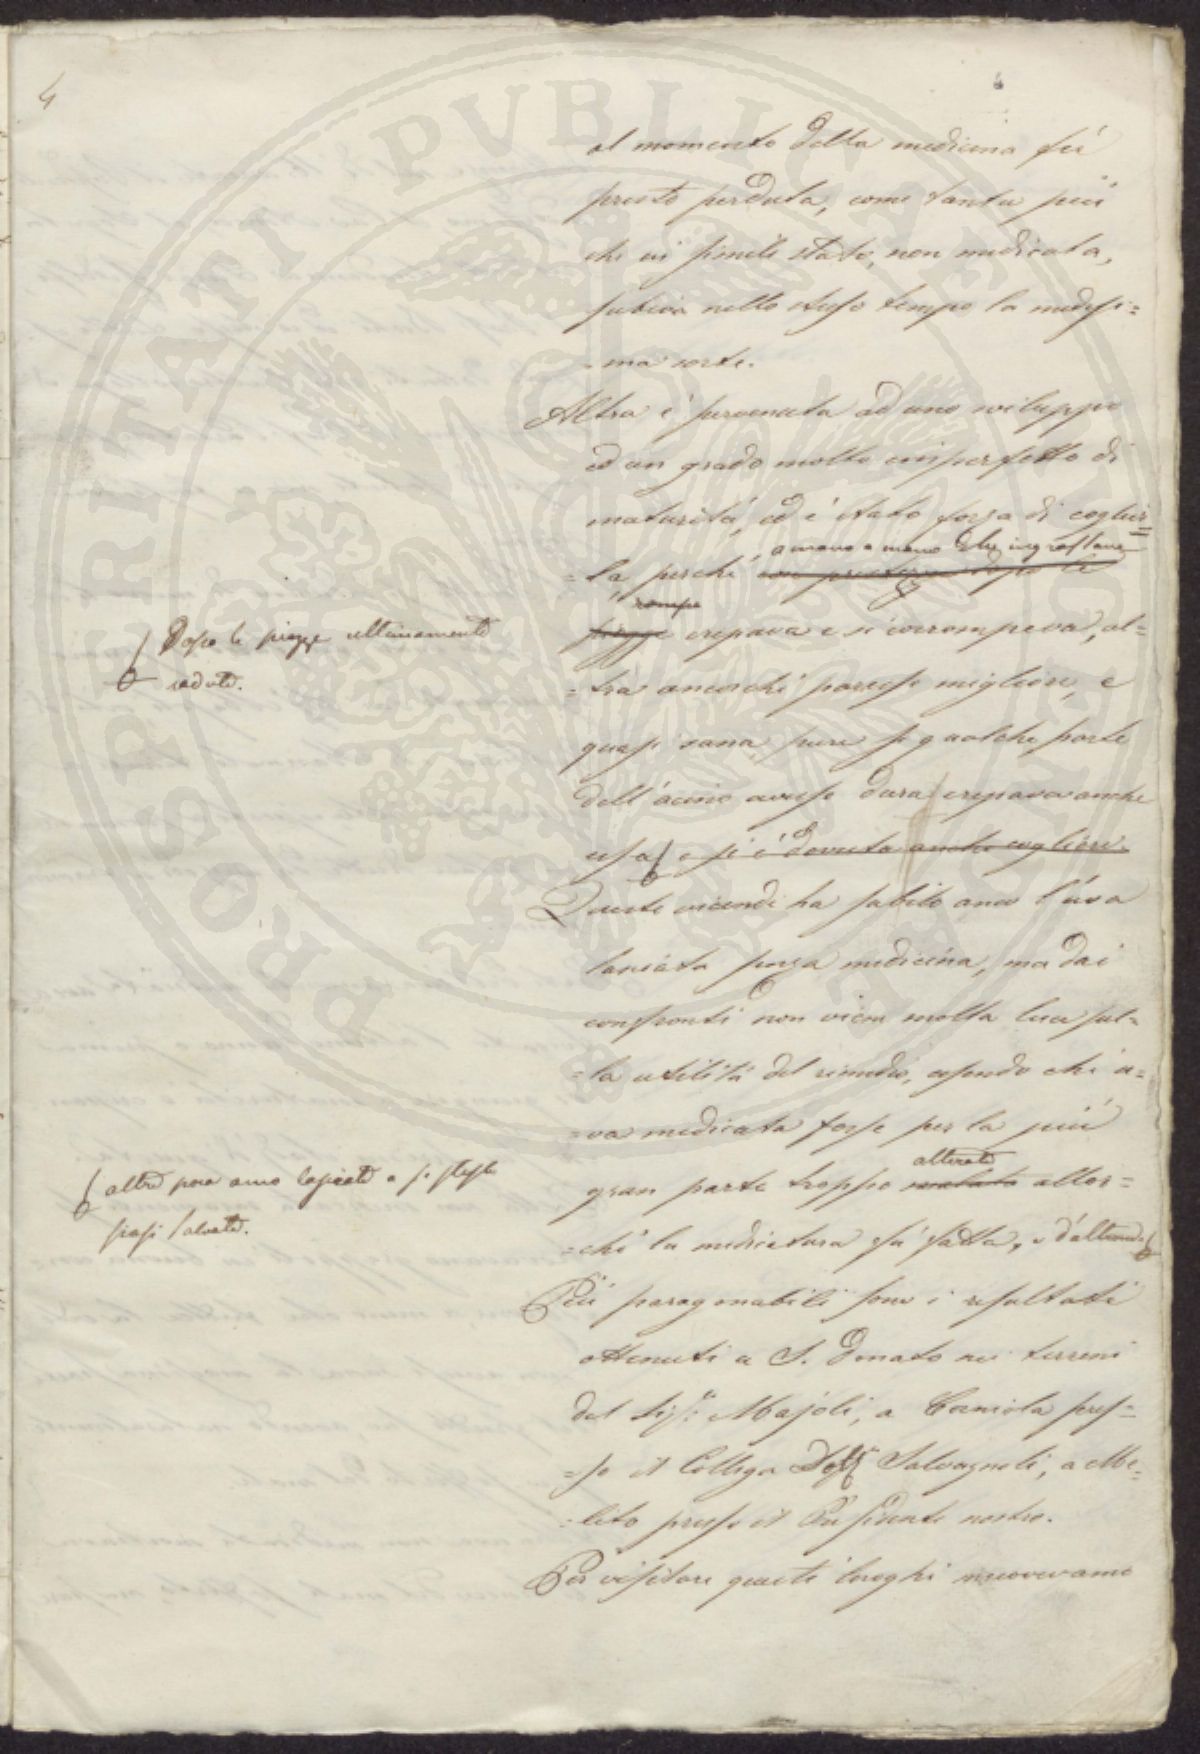 4
al momento della medicina fù
presto perduta, come tanta più
che in simile stato, non medicata,
subiva nello stesso tempo la medesi=
=ma sorte.
Altra è pervenuta ad uno sviluppo
ed un grado molto imperfetto di
maturità, ed è stato forza di coglier=
, a mano a mano che ingrossava
=la, perchè con prestezza dopo le
rompe
piogge crepava e si corrompeva, al=
=tra ancorchè paresse migliore, e
quasi sana, pure se qualche parte
dell'acino avesse dura crepava anche
essa e si è dovuta anche cogliere.
Dopo le piogge ultimamente
cadute.
Queste vicende ha subito anco l'uva
lasciata senza medicina, ma dai
confronti non viene molta luce sul=
=la utilità del rimedio, essendo che u=
=va medicata fosse per la più
alterata
gran parte troppo malata allor=
=chè la medicatura fù fatta, e d'altronde
altra poca anco lasciata a se stessa
siasi salvata.
Più paragonabili sono i resultati
ottenuti a S. Donato nei terreni
del Sig.r Majoli, a Corniola pres=
=so il Collega Dott. Salvagnoli, a Me=
=lito presso il Presidente nostro.
Per visitare questi luoghi muovevamo
PROSPERITATI PVBLICAE AVGENDAE